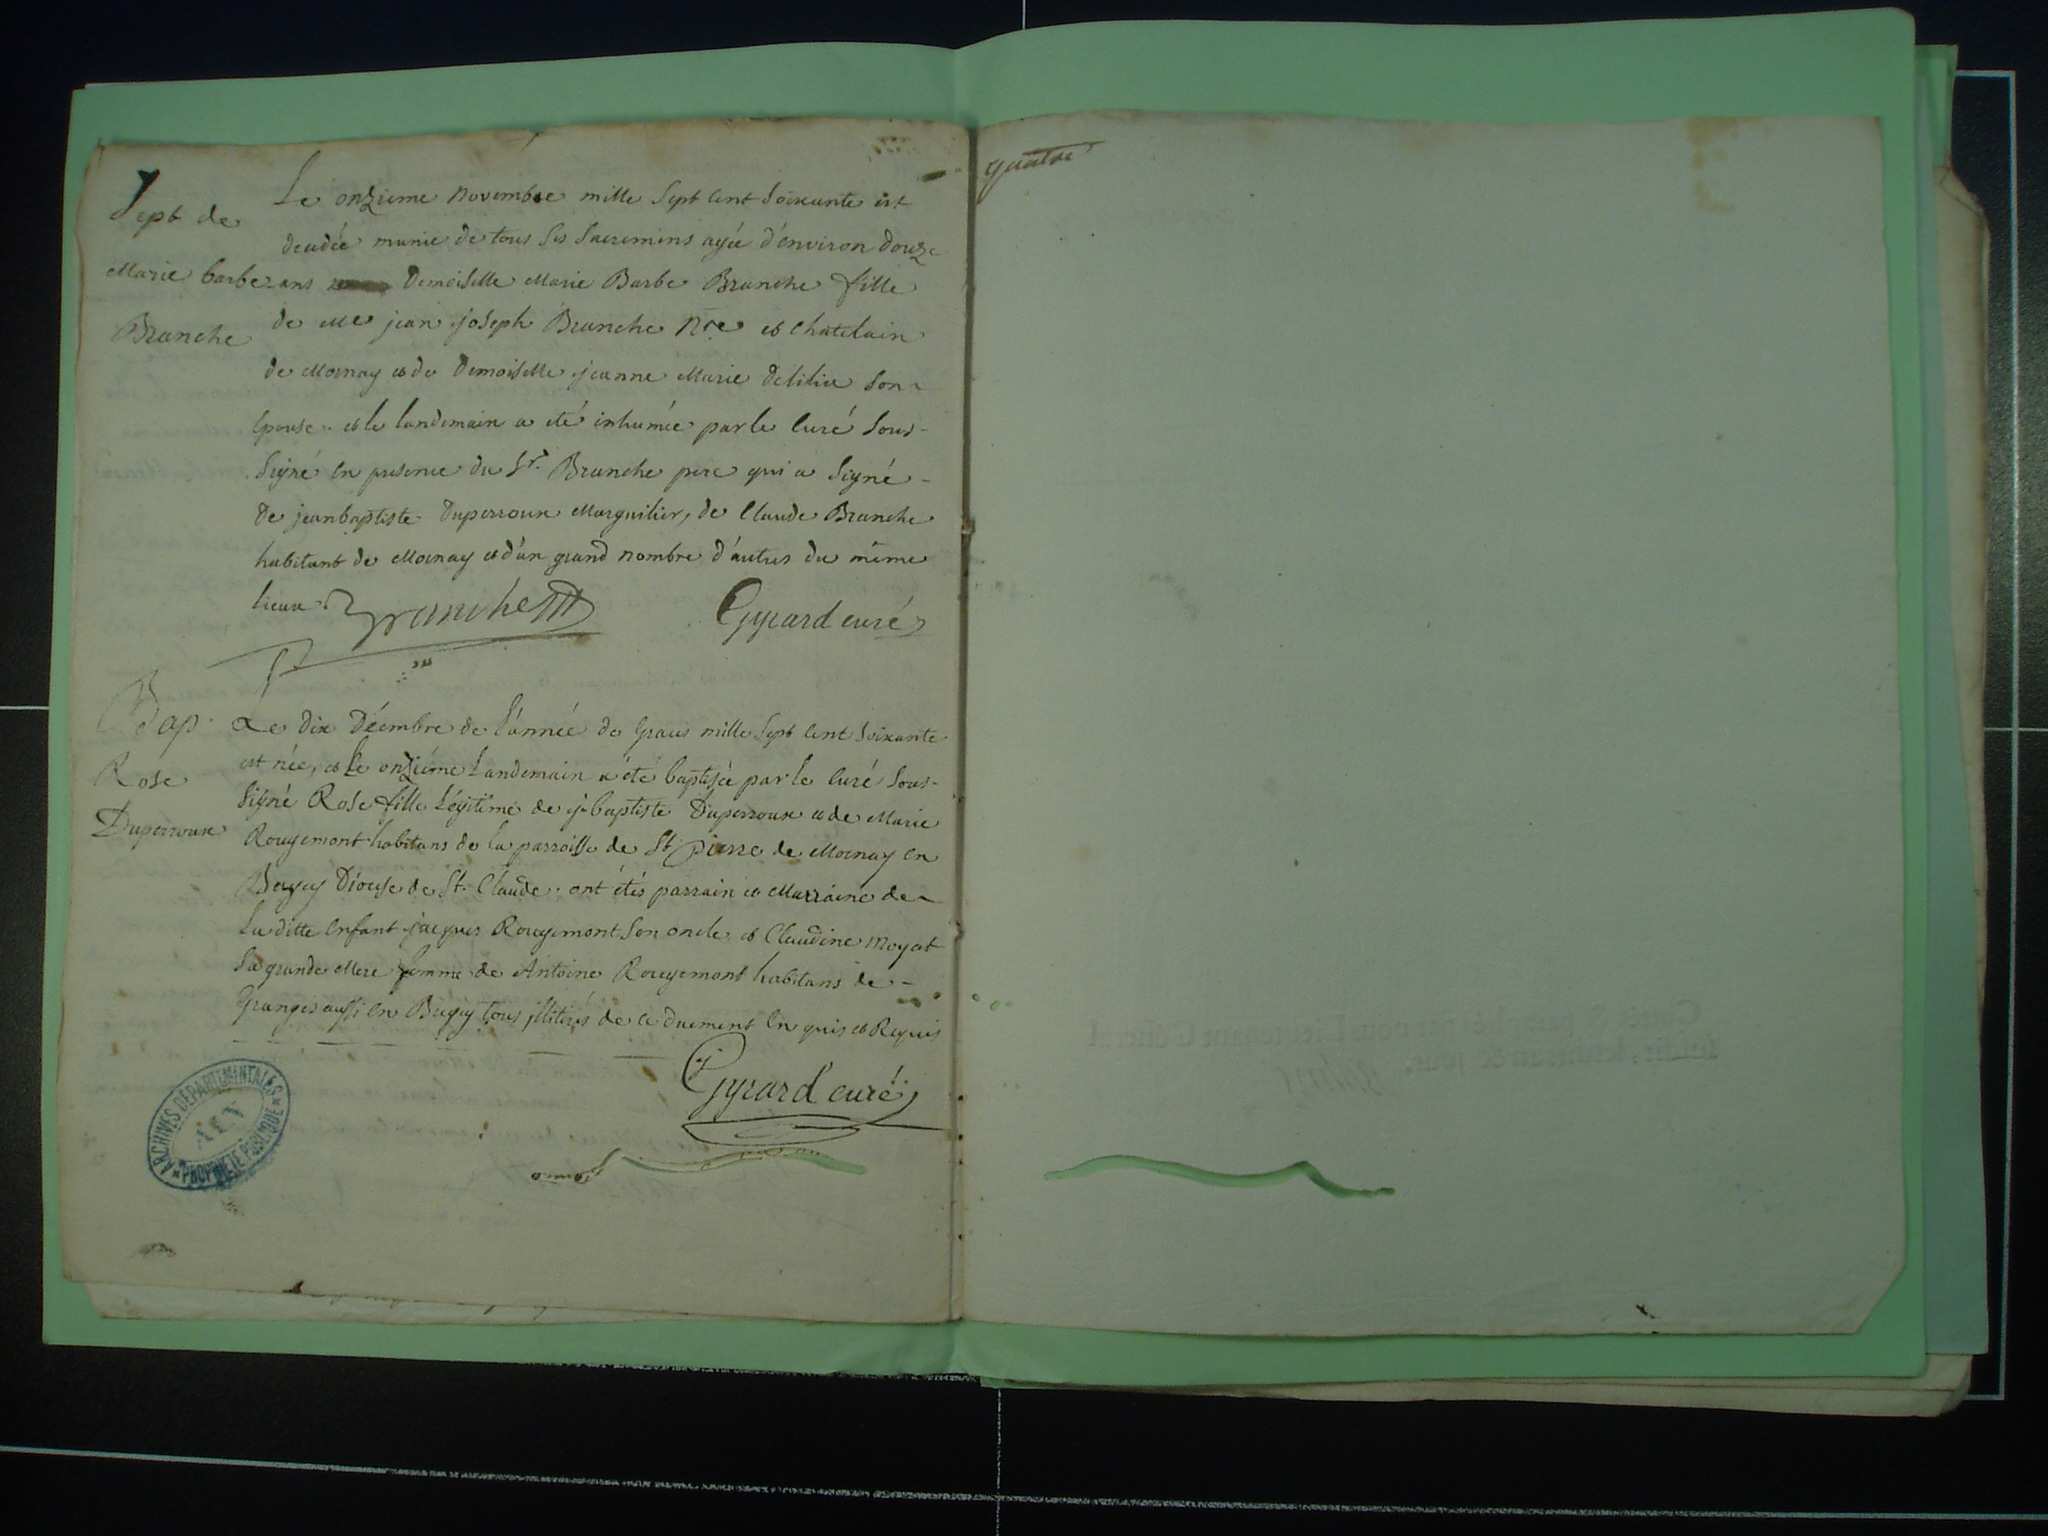 Sept de
Marie barbe
Branche
Le onzieme novembre mille sept cent soixante est
decedée munie de tous ses sacremens agée d'environ douze
ans Demoiselle Marie Barbe Branche fille
de Me jean joseph Branche Nre et Chatelain
de Mornay et de Demoiselle jeanne Marie Delilia son
epouse et le landemain a eté inhumée par le curé sous-
signé en presence du Sr. Branche pere qui a signé -
De jeanbaptiste Duperroux Marguilier, de Claude Branche
habitant de Mornay et d'un grand nombre d'autres du même
lieux Branche Gyrard curé
Bap
Rose
Duperroux
Le dix Décembre de l'année de grace mille sept cent soixante
est née, et le onziéme landemain a été baptisée par le curé sous-
signé Rose fille légitime de j. baptiste Duperroux et de Marie
Rougemont habitans de la parroisse de St pierre de Mornay en
Bugey Diocese de St. Claude; ont étés parrain et Marraine de
la ditte enfant jacques Rougemont son oncle et Claudine moyat
sa grande Mere femme de Antoine Rougemont habitans de -
Granges aussi en Bugey tous illitérés de ce duement en quis et Requis
Gyrard curé
ARCHIVES DEPARTEMENTALES
AIN
PROPRIETE PUBLIQUE
quatre